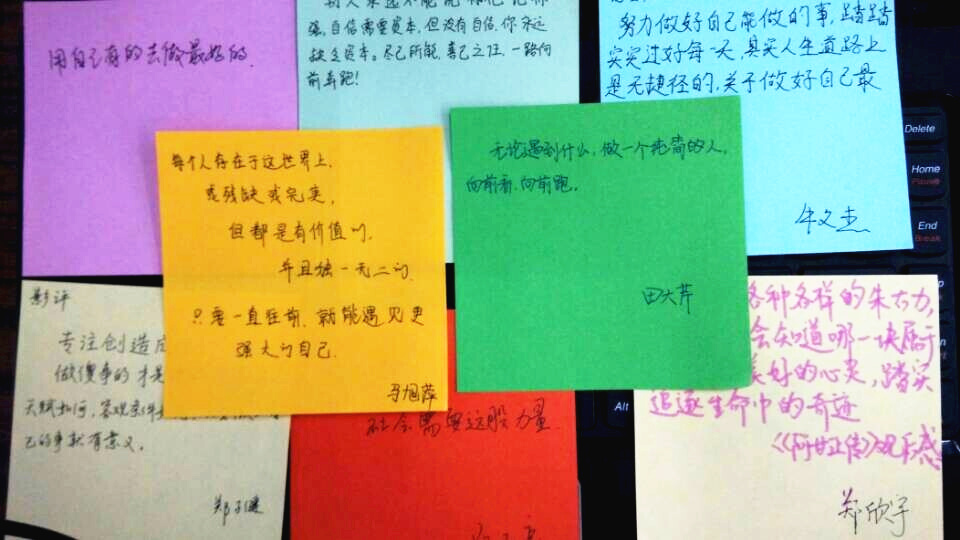 用自己有的去做最好的.
强,自信需要资本,但没有自信,你永远
缺乏资本。尽己所能,喜己之任,一路向
前奔跑!
努力做好自己能做的事,踏踏
实实过好每一天,其实人生道路上
是无捷径的,关于做好自己最
牛文杰
每个人存在于这世界上,
或残缺或完美,
但都是有价值的,
并且独一无二的.
只要一直往前,就能遇见更
强大的自己.
马旭萍
无论遇到什么,做一个纯简的人,
向前看,向前跑。
田大芹
影评
专注创造
做傻事的 才是
天赋如何,客观条件
己的事就有意义。
郑子健
社会需要这股力量
各种各样的朱古力,
会知道哪一块属于
美好的心灵,踏实
追逐生命中的奇迹
《阿甘正传》观后感
郑欣宇
Delete
Home
Pause
End
Break
Alt